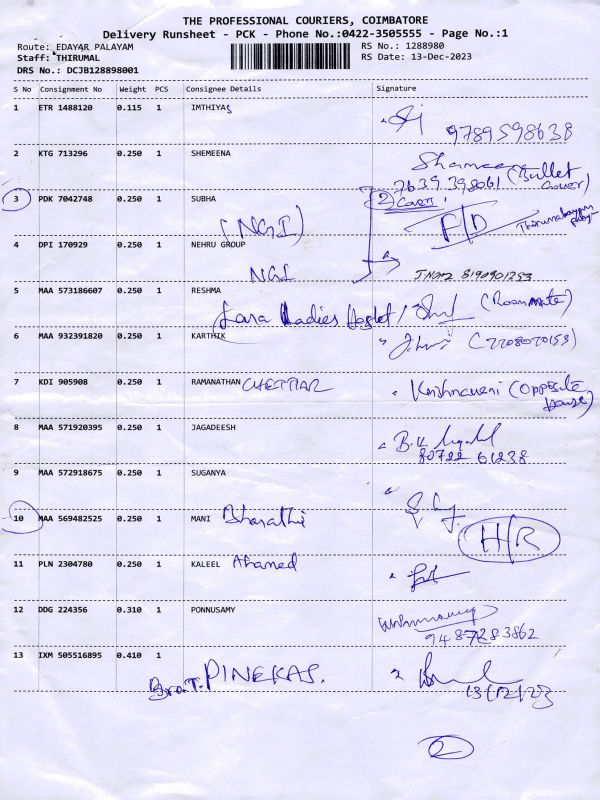 THE PROFESSIONAL COURIERS, COIMBATORE
Delivery Runsheet - PCK - Phone No.:0422-3505555 - Page No.:1
Route: EDAYAR PALAYAM RS No.: 1288980
Staff: THIRUMAL RS Date: 13-Dec-2023
DRS No.: DCJB128898001
S No Consignment No Weight PCS Consignee Details Signature
1 ETR 1488120 0.115 1 IMTHIYAS
9789598638
2 KTG 713296 0.250 1 SHEMEENA Shameena
7639398061 (Bullet
3 PDK 7042748 0.250 1 SUBHA
(NGI) F/D
4 DPI 170929 0.250 1 NEHRU GROUP
NGI 8190901293
5 MAA 573186607 0.250 1 RESHMA
Lara Ladies Hostel / (Roommate)
6 MAA 932391820 0.250 1 KARTHIK (7708070153)
7 KDI 905908 0.250 1 RAMANATHAN CHETTIAR Krishnaveni (opposite
house)
8 MAA 571920395 0.250 1 JAGADEESH
80722 61238
9 MAA 572918675 0.250 1 SUGANYA
10 MAA 569482525 0.250 1 MANI Bharathi
H/R
11 PLN 2304780 0.250 1 KALEEL Ahamed
12 DDG 224356 0.310 1 PONNUSAMY
9487283862
13 IXM 505516895 0.410 1
PINEKAS.
13/12/23
2